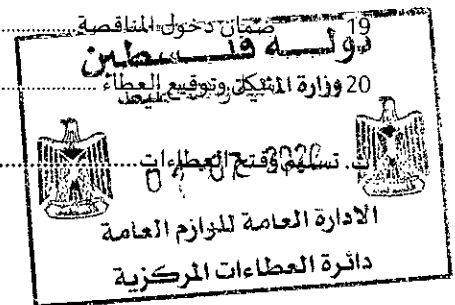 19 ضمان دخول المناقصة
دولة فلسطين
20 وزارة المالية
شكل وتوقيع العطاء
ت. تسليم وفتح العطاءات
الادارة العامة للوازم العامة
دائرة العطاءات المركزية